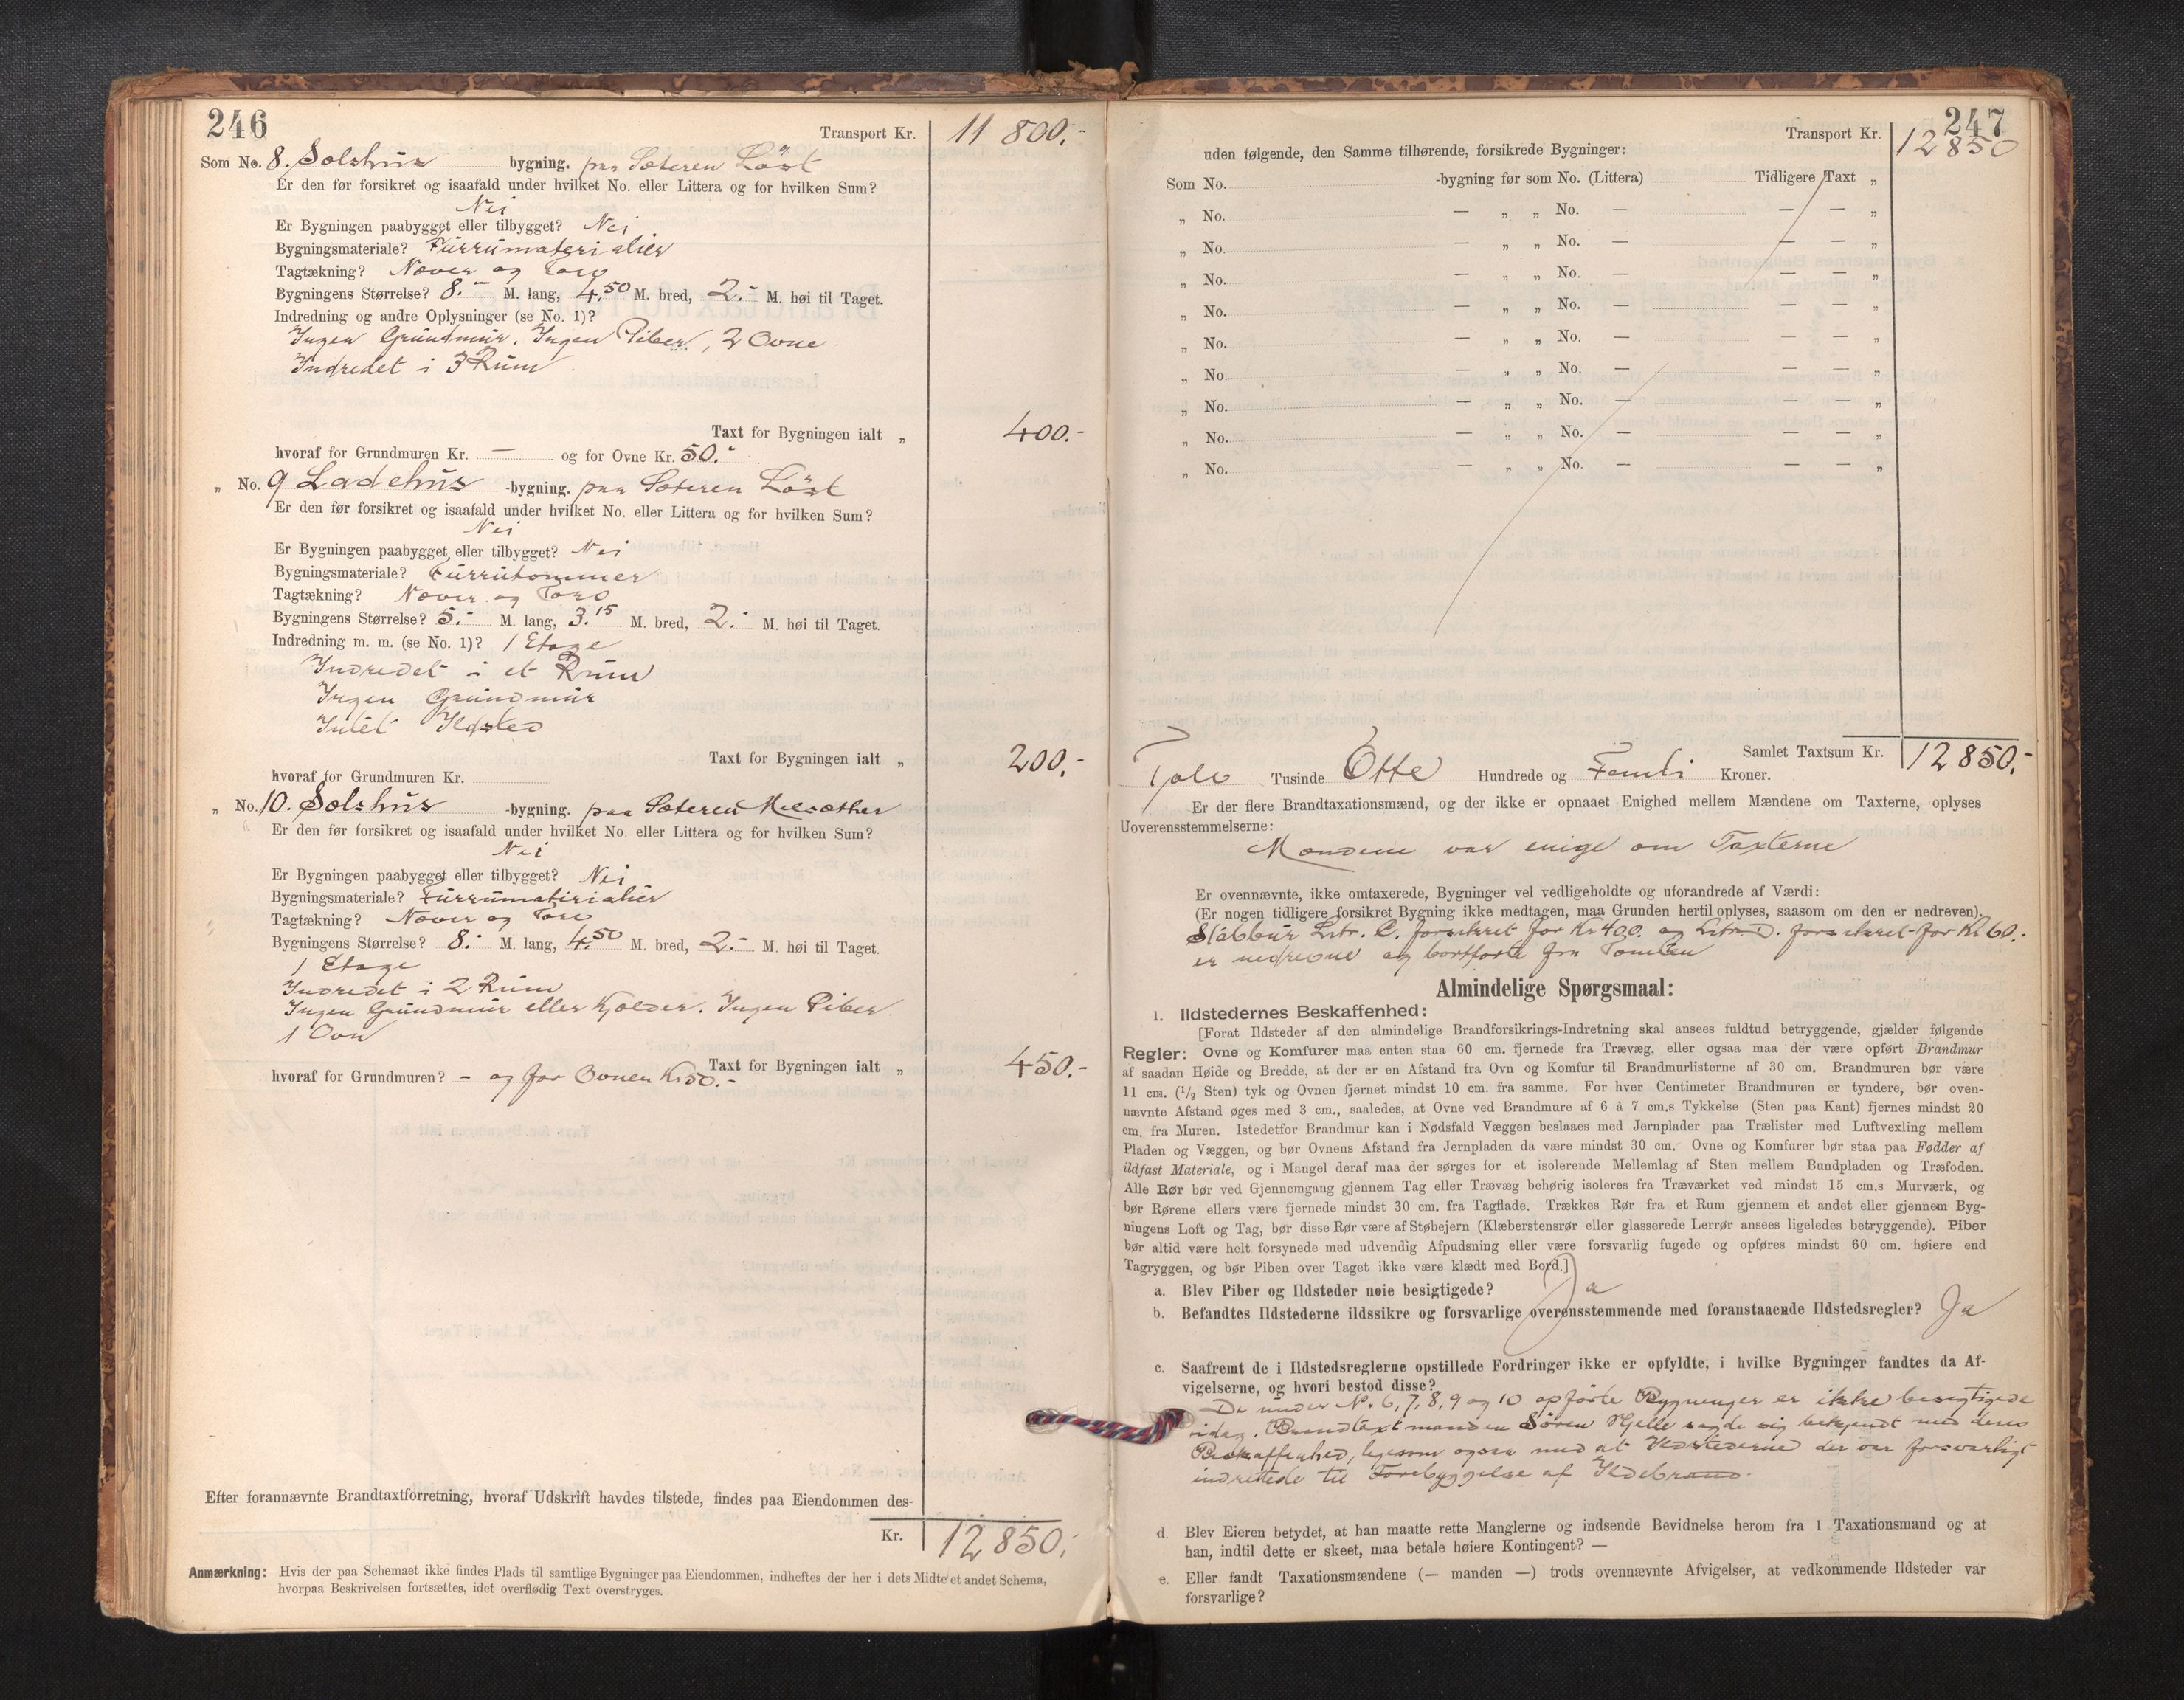 246
Transport Kr. 11 800.-
Som No. 8. Selshus bygning. paa Sæteren Löst
Er den før forsikret og isaafald under hvilket No. eller Littera og for hvilken Sum?
Nei
Er Bygningen paabygget eller tilbygget? Nei
Bygningsmateriale? Furrumaterialier
Tagtækning? Næver og Torv
Bygningens Størrelse? 8.- M. lang, 4.50 M. bred, 2.- M. høi til Taget.
Indredning og andre Oplysninger (se No. 1)?
Ingen Grundmur. Ingen Piber, 2 Ovne
Indredet i 3 Rum
Taxt for Bygningen ialt „ 400.-
hvoraf for Grundmuren Kr. — og for Ovne Kr. 50.-
„ No. 9 Ladehus -bygning. paa Sæteren Löst
Er den før forsikret og isaafald under hvilket No. eller Littera og for hvilken Sum?
Nei
Er Bygningen paabygget eller tilbygget? Nei
Bygningsmateriale? Furrutommer
Tagtækning? Næver og Torv
Bygningens Størrelse? 5.- M. lang, 3.15 M. bred, 2.- M. høi til Taget.
Indredning m. m. (se No. 1)? 1 Etage
Indredet i et Rum
Ingen Grundmur
Intet Ildsted
Taxt for Bygningen ialt „ 200.-
hvoraf for Grundmuren Kr.
„ No. 10. Selshus -bygning. paa Sæteren Melsæther
Er den før forsikret og isaafald under hvilket No. eller Littera og for hvilken Sum?
Nei
Er Bygningen paabygget eller tilbygget? Nei
Bygningsmateriale? Furrumaterialier
Tagtækning? Næver og Torv
Bygningens Størrelse? 8.- M. lang, 4.50 M. bred, 2.- M. høi til Taget.
1 Etage
Indredet i 2 Rum
Ingen Grundmur eller Kjælder. Ingen Piber.
1 Ovn
Taxt for Bygningen ialt „ 450.-
hvoraf for Grundmuren? - og for Ovnen Kr 50.-
Efter forannævnte Brandtaxtforretning, hvoraf Udskrift havdes tilstede, findes paa Eiendommen des-
Kr. 12 850.-
Anmærkning: Hvis der paa Schemaet ikke findes Plads til samtlige Bygninger paa Eiendommen, indheftes der her i dets Midte et andet Schema,
hvorpaa Beskrivelsen fortsættes, idet overflødig Text overstryges.
247
Transport Kr. 12 850
uden følgende, den Samme tilhørende, forsikrede Bygninger:
Som No. -bygning før som No. (Littera) Tidligere Taxt „
„ No. — „ „ No. — — — „
„ No. — „ „ No. — — — „
„ No. — „ „ No. — — — „
„ No. — „ „ No. — — — „
„ No. — „ „ No. — — — „
„ No. — „ „ No. — — — „
„ No. — „ „ No. — — — „
„ No. — „ „ No. — — — „
„ No. — „ „ No. — — — „
Samlet Taxtsum Kr. 12 850.-
Tolv Tusinde Otte Hundrede og Femti Kroner.
Er der flere Brandtaxationsmænd, og der ikke er opnaaet Enighed mellem Mændene om Taxterne, oplyses
Uoverensstemmelserne:
Mændene var enige om Taxterne
Er ovennævnte, ikke omtaxerede, Bygninger vel vedligeholdte og uforandrede af Værdi:
(Er nogen tidligere forsikret Bygning ikke medtagen, maa Grunden hertil oplyses, saasom om den er nedreven).
Stabbur Litr. C. forsikret for Kr 400. og Litr. D. forsikret for Kr 60.
er nedrevne og bortførte fra Tomten
Almindelige Spørgsmaal:
1. Ildstedernes Beskaffenhed:
[Forat Ildsteder af den almindelige Brandforsikrings-Indretning skal ansees fuldtud betryggende, gjælder følgende
Regler: Ovne og Komfurer maa enten staa 60 cm. fjernede fra Trævæg, eller ogsaa maa der være opført Brandmur
af saadan Høide og Bredde, at der er en Afstand fra Ovn og Komfur til Brandmurlisterne af 30 cm. Brandmuren bør være
11 cm. (1/2 Sten) tyk og Ovnen fjernet mindst 10 cm. fra samme. For hver Centimeter Brandmuren er tyndere, bør oven-
nævnte Afstand øges med 3 cm., saaledes, at Ovne ved Brandmure af 6 à 7 cm.s Tykkelse (Sten paa Kant) fjernes mindst 20
cm. fra Muren. Istedetfor Brandmur kan i Nødsfald Væggen beslaaes med Jernplader paa Trælister med Luftvexling mellem
Pladen og Væggen, og bør Ovnens Afstand fra Jernpladen da være mindst 30 cm. Ovne og Komfurer bør staa paa Fødder af
ildfast Materiale, og i Mangel deraf maa der sørges for et isolerende Mellemlag af Sten mellem Bundpladen og Træfoden.
Alle Rør bør ved Gjennemgang gjennem Tag eller Trævæg behørig isoleres fra Træværket ved mindst 15 cm.s Murværk, og
bør Rørene ellers være fjernede mindst 30 cm. fra Tagflade. Trækkes Rør fra et Rum gjennem et andet eller gjennem Byg-
ningens Loft og Tag, bør disse Rør være af Støbejern (Klæberstensrør eller glasserede Lerrør ansees ligeledes betryggende). Piber
bør altid være helt forsynede med udvendig Afpudsning eller være forsvarlig fugede og opføres mindst 60 cm. høiere end
Tagryggen, og bør Piben over Taget ikke være klædt med Bord.]
a. Blev Piber og Ildsteder nøie besigtigede? Ja
b. Befandtes Ildstederne ildssikre og forsvarlige overensstemmende med foranstaaende Ildstedsregler? Ja
c. Saafremt de i Ildstedsreglerne opstillede Fordringer ikke er opfyldte, i hvilke Bygninger fandtes da Af-
vigelserne, og hvori bestod disse?
De under No. 6, 7, 8, 9 og 10 opførte Bygninger er ikke besigtigede
idag. Brandtaxtmanden Sören Hjelle sagde sig bekjendt med deres
Beskaffenhed, ligesom ogsaa med at Ildstederne der var forsvarligt
indrettede til Forebyggelse af Ildebrand.
d. Blev Eieren betydet, at han maatte rette Manglerne og indsende Bevidnelse herom fra 1 Taxationsmand og at
han, indtil dette er skeet, maa betale høiere Kontingent? —
e. Eller fandt Taxationsmændene (— manden —) trods ovennævnte Afvigelser, at vedkommende Ildsteder var
forsvarlige?